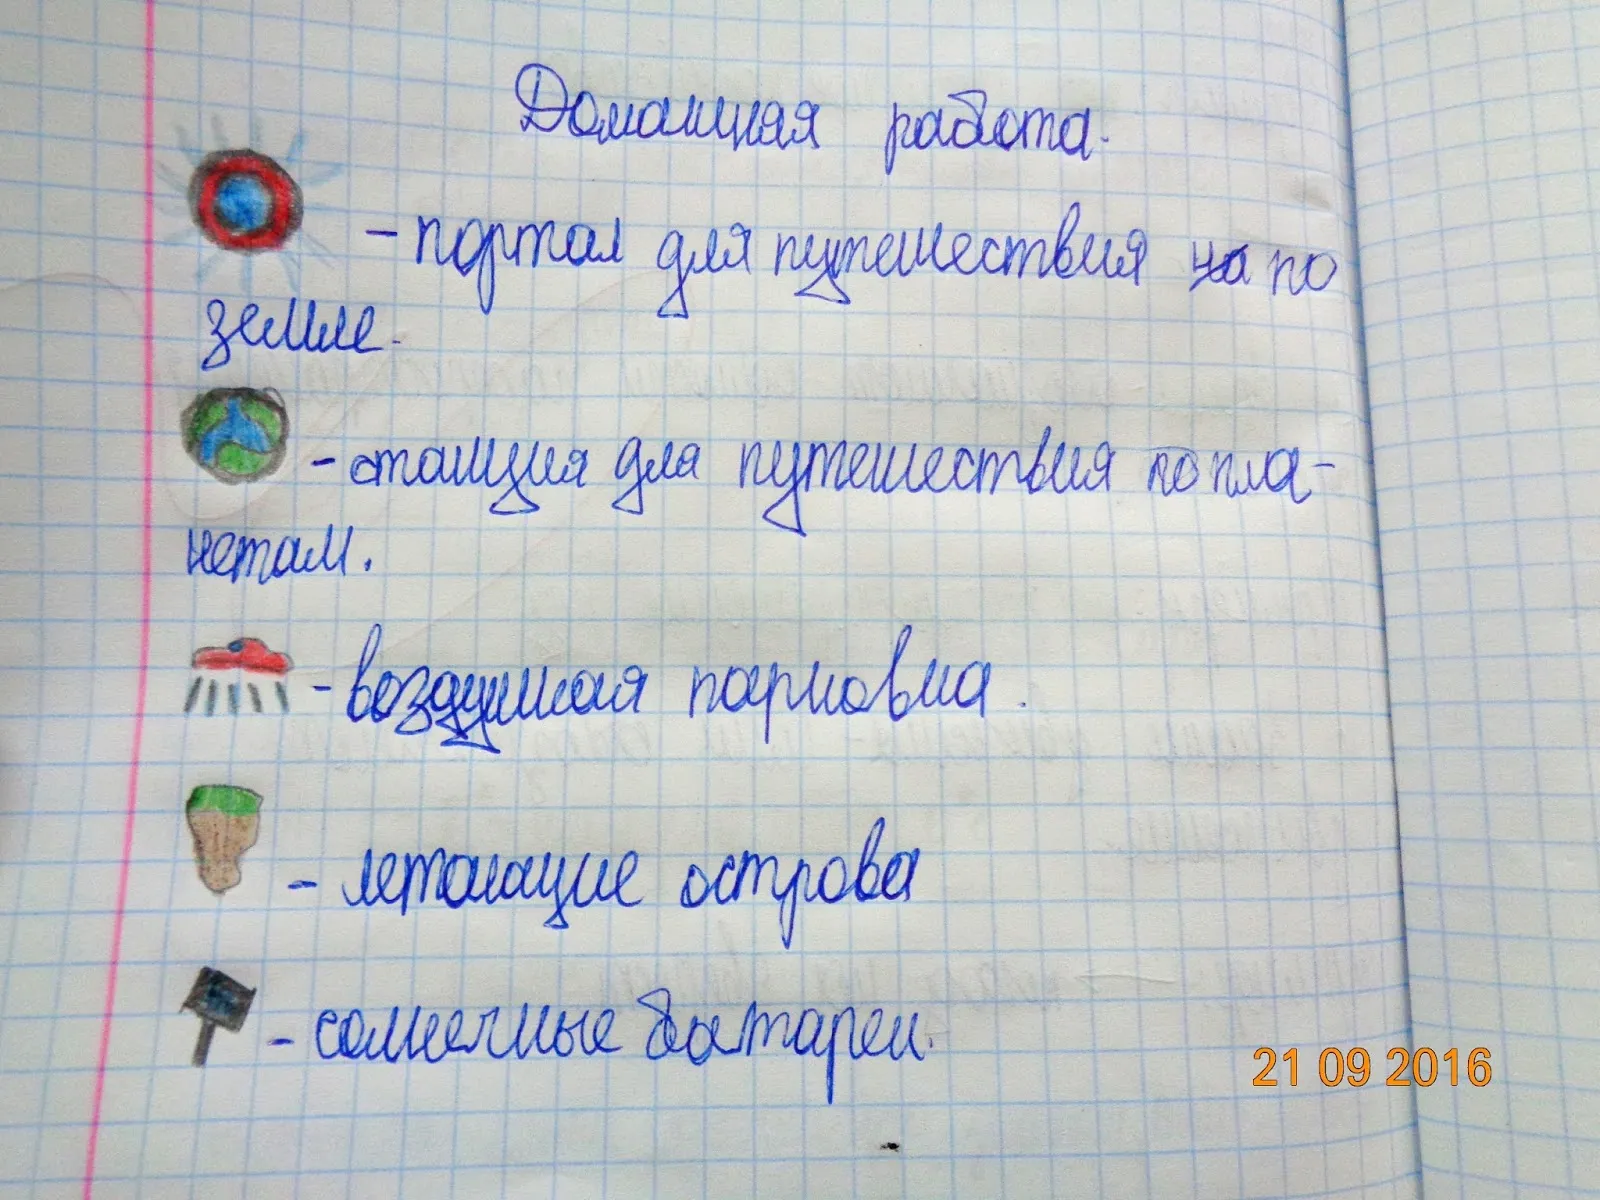 Домашняя работа.
- портал для путешествия на по
земле.
- станция для путешествия по пла-
нетам.
- воздушная парковка.
- летающие острова
- солнечные батареи.
21 09 2016